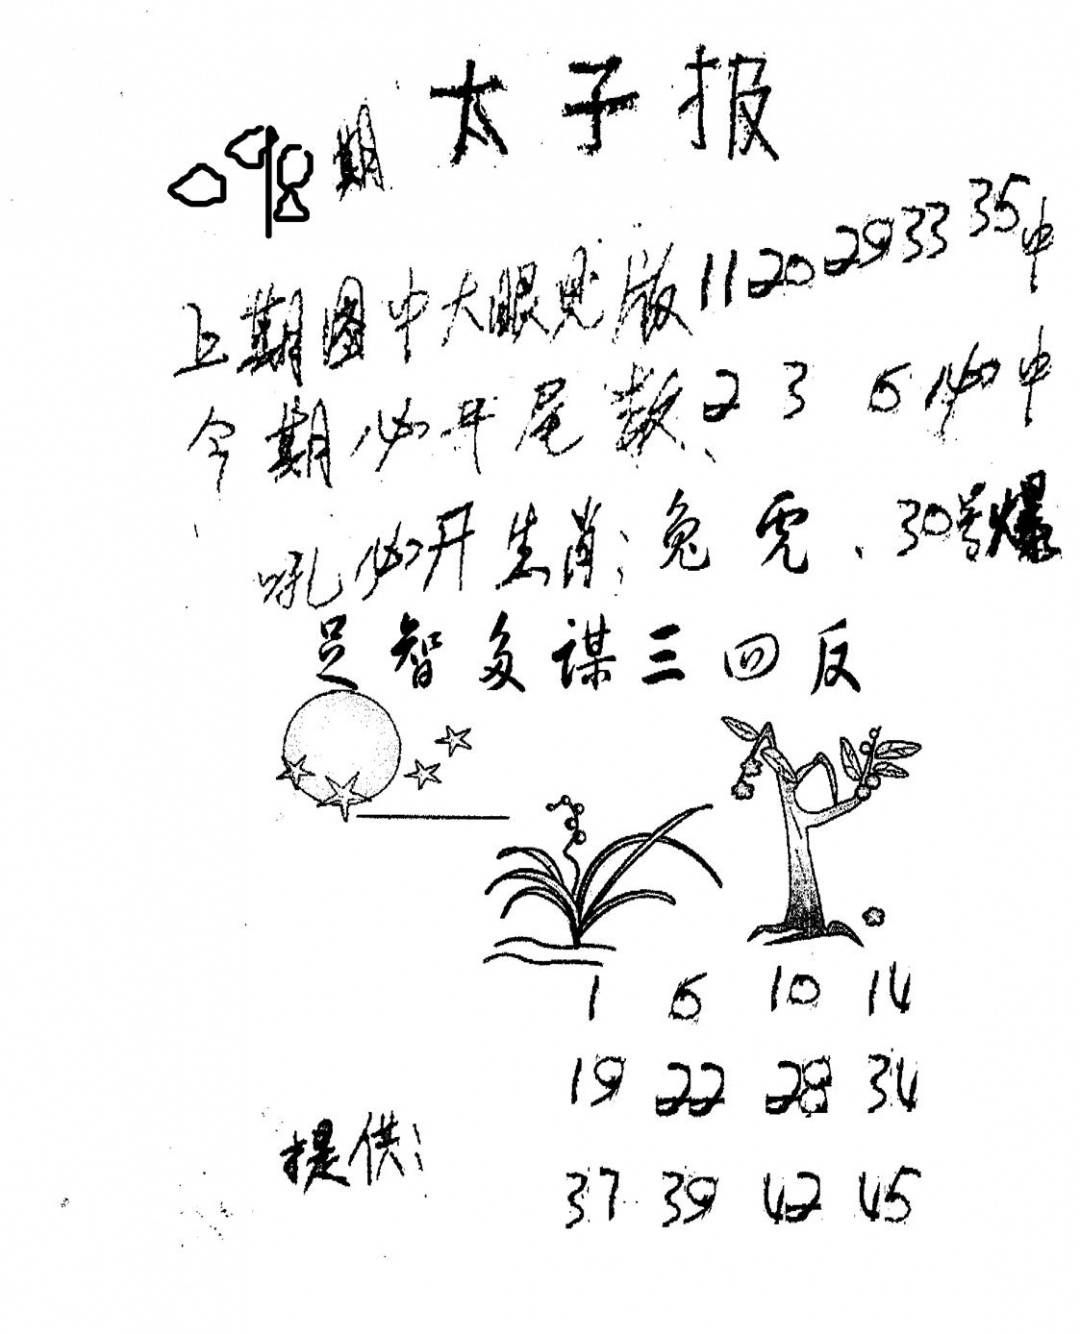 太子报
098期
上期图中大眼见版11 20 29 33 35中
今期必开尾数、2 3 6必中
吼必开生肖:兔虎、30号爆
足智多谋三回反
1 6 10 14
19 22 28 34
提供:
37 39 42 45